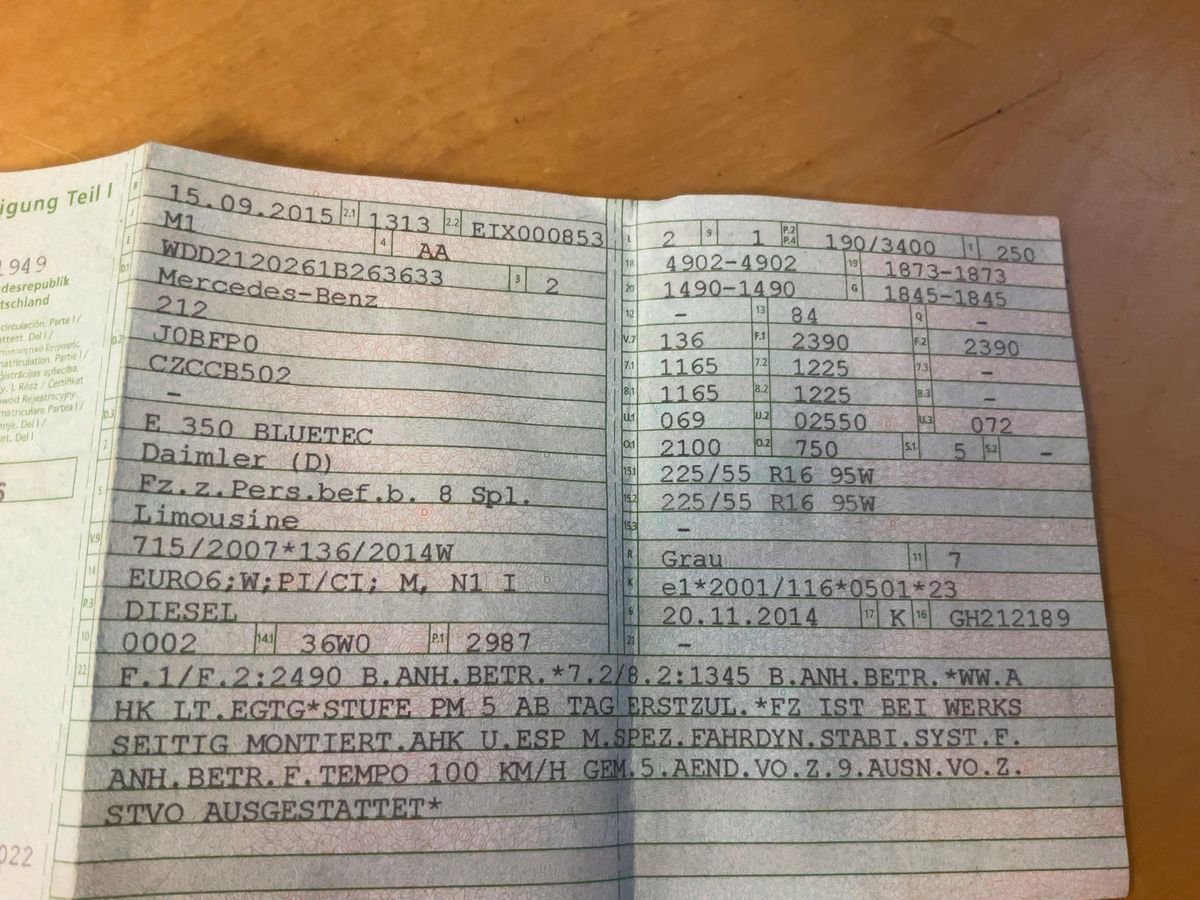 igung Teil I
1949
desrepublik
tschland
circulación. Parte I /
attest. Del I /
matriculation. Partie I /
istrācijas apliecība.
y. I. Rész / Ċertifikat
owód Rejestracyjny.
matriculare Partea I /
enje. Del I /
et. Del I
022
B 15.09.2015 2.1 1313 2.2 EIX000853
J M1 4 AA
E WDD2120261B263633 3 2
D.1 Mercedes-Benz
212
D.2 J0BFP0
CZCCB502
-
D.3 E 350 BLUETEC
2 Daimler (D)
5 Fz.z.Pers.bef.b. 8 Spl.
Limousine
V.9 715/2007*136/2014W
14 EURO6;W;PI/CI; M, N1 I
P.3 DIESEL
10 0002 14.1 36W0 P.1 2987
L 2 9 1 P.2 P.4 190/3400 T 250
18 4902-4902 19 1873-1873
20 1490-1490 G 1845-1845
12 - 13 84 Q -
V.7 136 F.1 2390 F.2 2390
7.1 1165 7.2 1225 7.3 -
8.1 1165 8.2 1225 8.3 -
U.1 069 U.2 02550 U.3 072
O.1 2100 O.2 750 S.1 5 S.2 -
15.1 225/55 R16 95W
15.2 225/55 R16 95W
15.3 -
R Grau 11 7
K e1*2001/116*0501*23
6 20.11.2014 17 K 16 GH212189
21 -
22 F.1/F.2:2490 B.ANH.BETR.*7.2/8.2:1345 B.ANH.BETR.*WW.A
HK LT.EGTG*STUFE PM 5 AB TAG ERSTZUL.*FZ IST BEI WERKS
SEITIG MONTIERT.AHK U.ESP M.SPEZ.FAHRDYN.STABI.SYST.F.
ANH.BETR.F.TEMPO 100 KM/H GEM.5.AEND.VO.Z.9.AUSN.VO.Z.
STVO AUSGESTATTET*